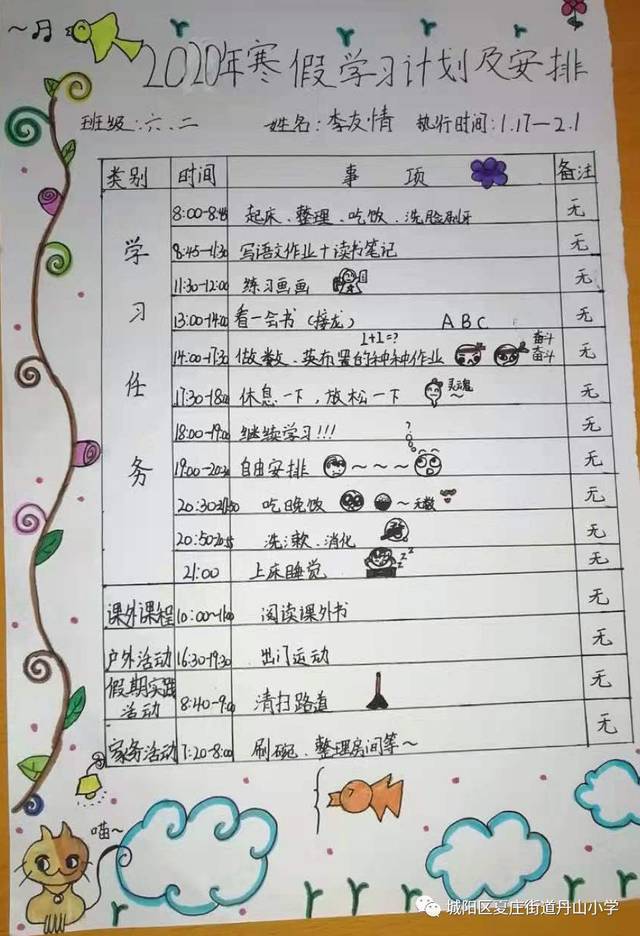 2020年寒假学习计划及安排
班级:六、二 姓名:李友情 执行时间:1.17—2.1
类别 时间 事项 备注
学习任务
8:00-8:45 起床、整理、吃饭、洗脸刷牙 无
8:45-11:30 写语文作业+读书笔记 无
11:30-12:00 练习画画 无
13:00-14:00 看一会书(接龙) A B C 无
1+1=?
14:00-17:30 做数、英布置的种种作业 奋斗 奋斗 无
17:30-18:00 休息一下,放松一下 灵魂~ 无
18:00-19:00 继续学习!!! 无
19:00-20:30 自由安排 ~~~~ 无
20:30 吃晚饭 ~无数 无
20:50 洗漱、消化 无
21:00 上床睡觉 zzz 无
课外课程 10:00~11:00 阅读课外书 无
户外活动 16:30-19:30 出门运动 无
假期实践活动 8:40-9:00 清扫路道 无
家务活动 7:20-8:00 刷碗、整理房间等~ 无
喵~
城阳区夏庄街道丹山小学